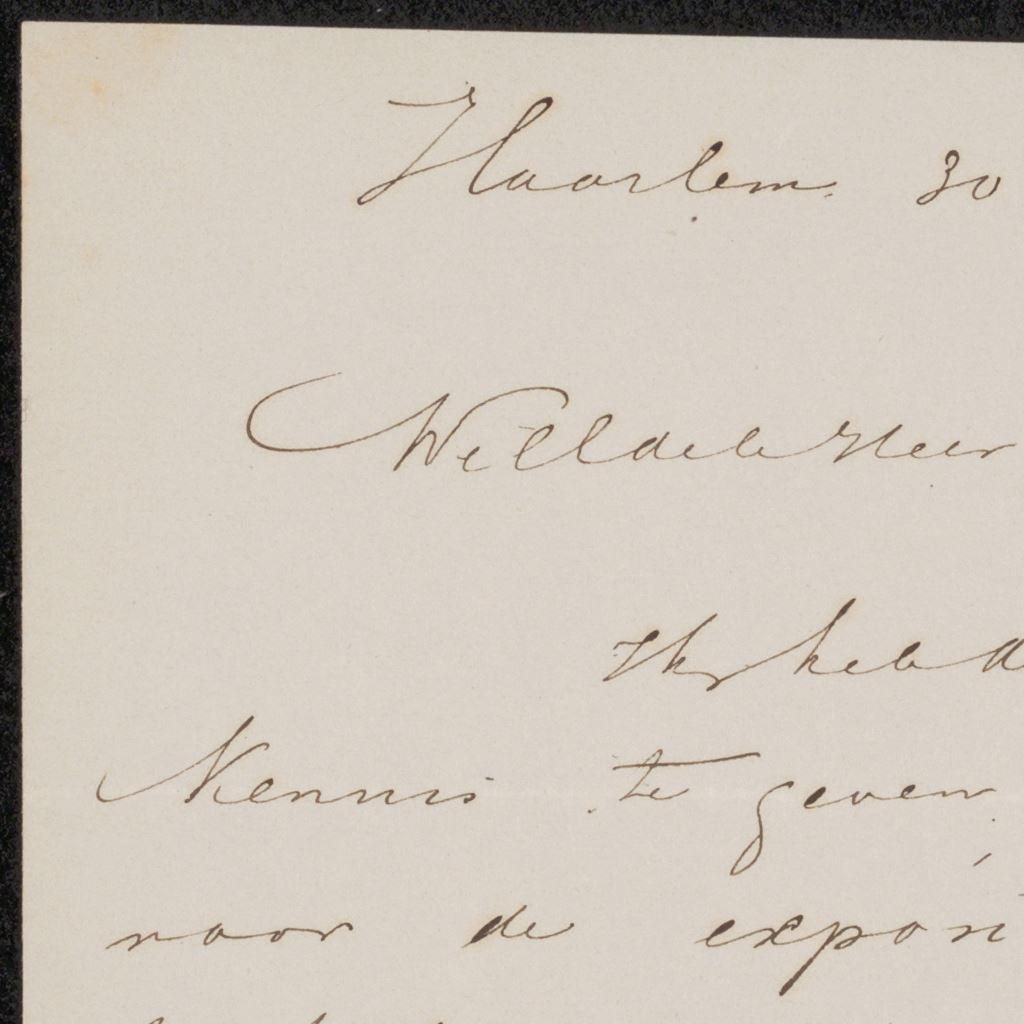 Haarlem 30
WelEdele Heer
Ik heb d
Kennis te geven
voor de exposi